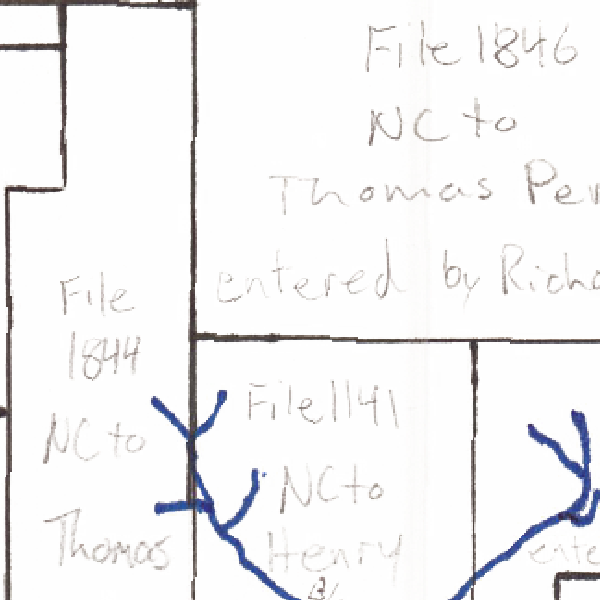 File 1846
NC to
Thomas Per
entered by Richa
File
1844
NC to
Thomas
File 1141
NC to
Henry
ente